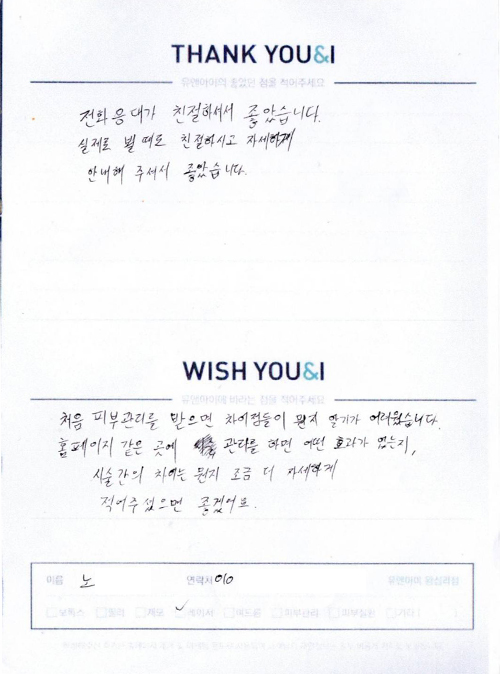 THANK YOU&I
유앤아이의 좋았던 점을 적어주세요
전화응대가 친절하셔서 좋았습니다.
실제로 뵐 때도 친절하시고 자세하게
안내해 주셔서 좋았습니다.
WISH YOU&I
유앤아이에 바라는 점을 적어주세요
처음 피부관리를 받으면 차이점들이 뭔지 알기가 어려웠습니다.
홈페이지 같은 곳에 관리를 하면 어떤 효과가 있는지,
시술간의 차이는 뭔지 조금 더 자세하게
적어주셨으면 좋겠어요.
이름 노 연락처 010 유앤아이 관심과정
보톡스 필러 제모 레이저 여드름 피부관리 피부질환 기타 ( )